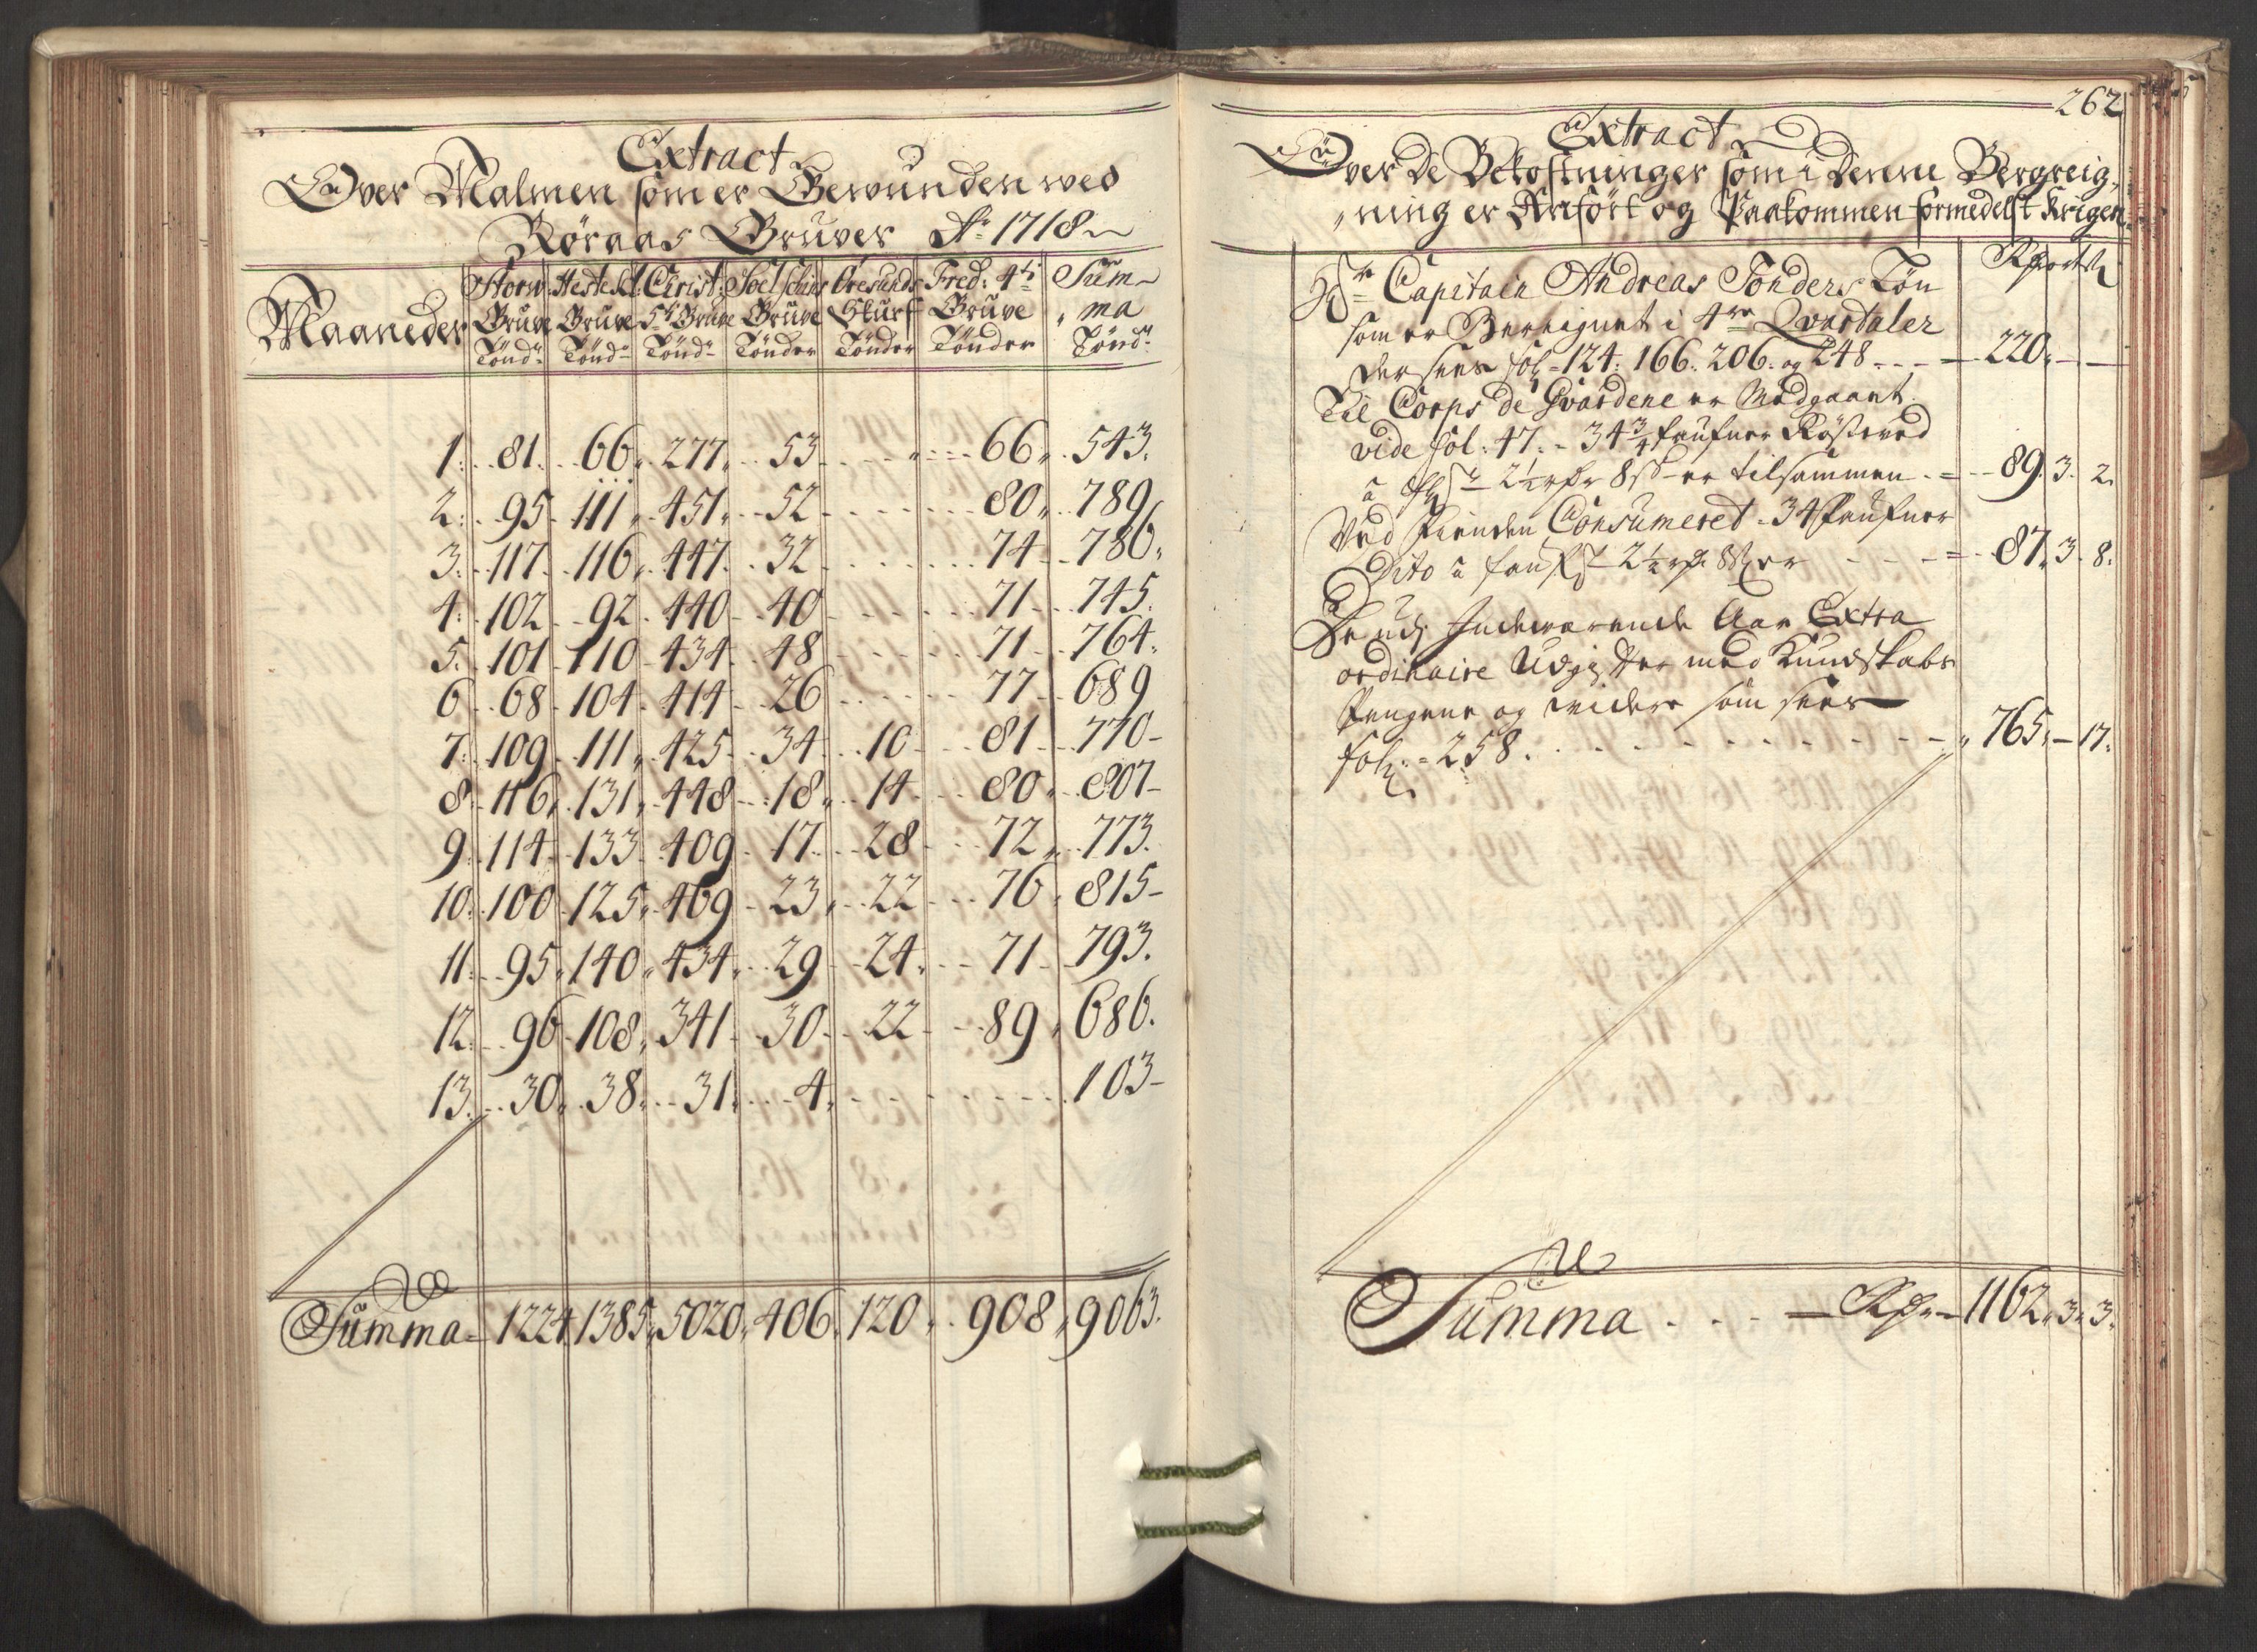 Extract
Over Malmen som er Gewunden wed
Røraas Gruver Ao 1718
Maaneder Storw: Gruve Tønd: Hestekl: Gruve Tønd: Christ: 5ti Gruve Tønd: Soelschins Gruve Tønder Øresunds Skurf Tønder Fred: 4ti Gruve Tønder Sum- ma Tønd:
1. 81. 66. 277. 53 66. 543.
2. 95 111. 451. 52 80. 789
3. 117. 116. 447. 32 74 786.
4. 102 92. 440 40 71 745.
5. 101 110 434 48 71 764.
6 68 104. 414 26 77 689
7. 109 111. 425 34 10 81 770
8. 116. 131. 448 18. 14 80. 807
9. 114 133 409 17 28 72 773.
10. 100 125. 469 23 22 76 815
11. 95. 140. 434. 29 24. 71 793.
12. 96 108. 341 30 22 89 686.
13. 30. 38. 31. 4. 103
Summa 1224 1385. 5020. 406. 120. 908. 9063.
262
Extract
Over de Bekostninger som i denne Bergreig,
,ning er Anført og Paakommen formedelst Krigen
Hr Capitain Andreas Tønders Løn
som er Bereignet i 4re Qvartaler
der sees fol 124. 166. 206. og 248 220.
Til Corps de Gvardene er Medgaaet.
vide fol. 47. 34 3/4 faufner Røsteved
à 2 1/2 8 s er tilsammen 89. 3. 2.
Ved Fienden Consumeret 34 faufner
Dito à 2 1/2 8 er 87. 3. 8.
Indeværende Aar Extra
ordinaire Udgifter med Kundskabs
Pengene og videre som sees
fol. 258. 765. 17.
Summa Rdr 1162. 3. 3.